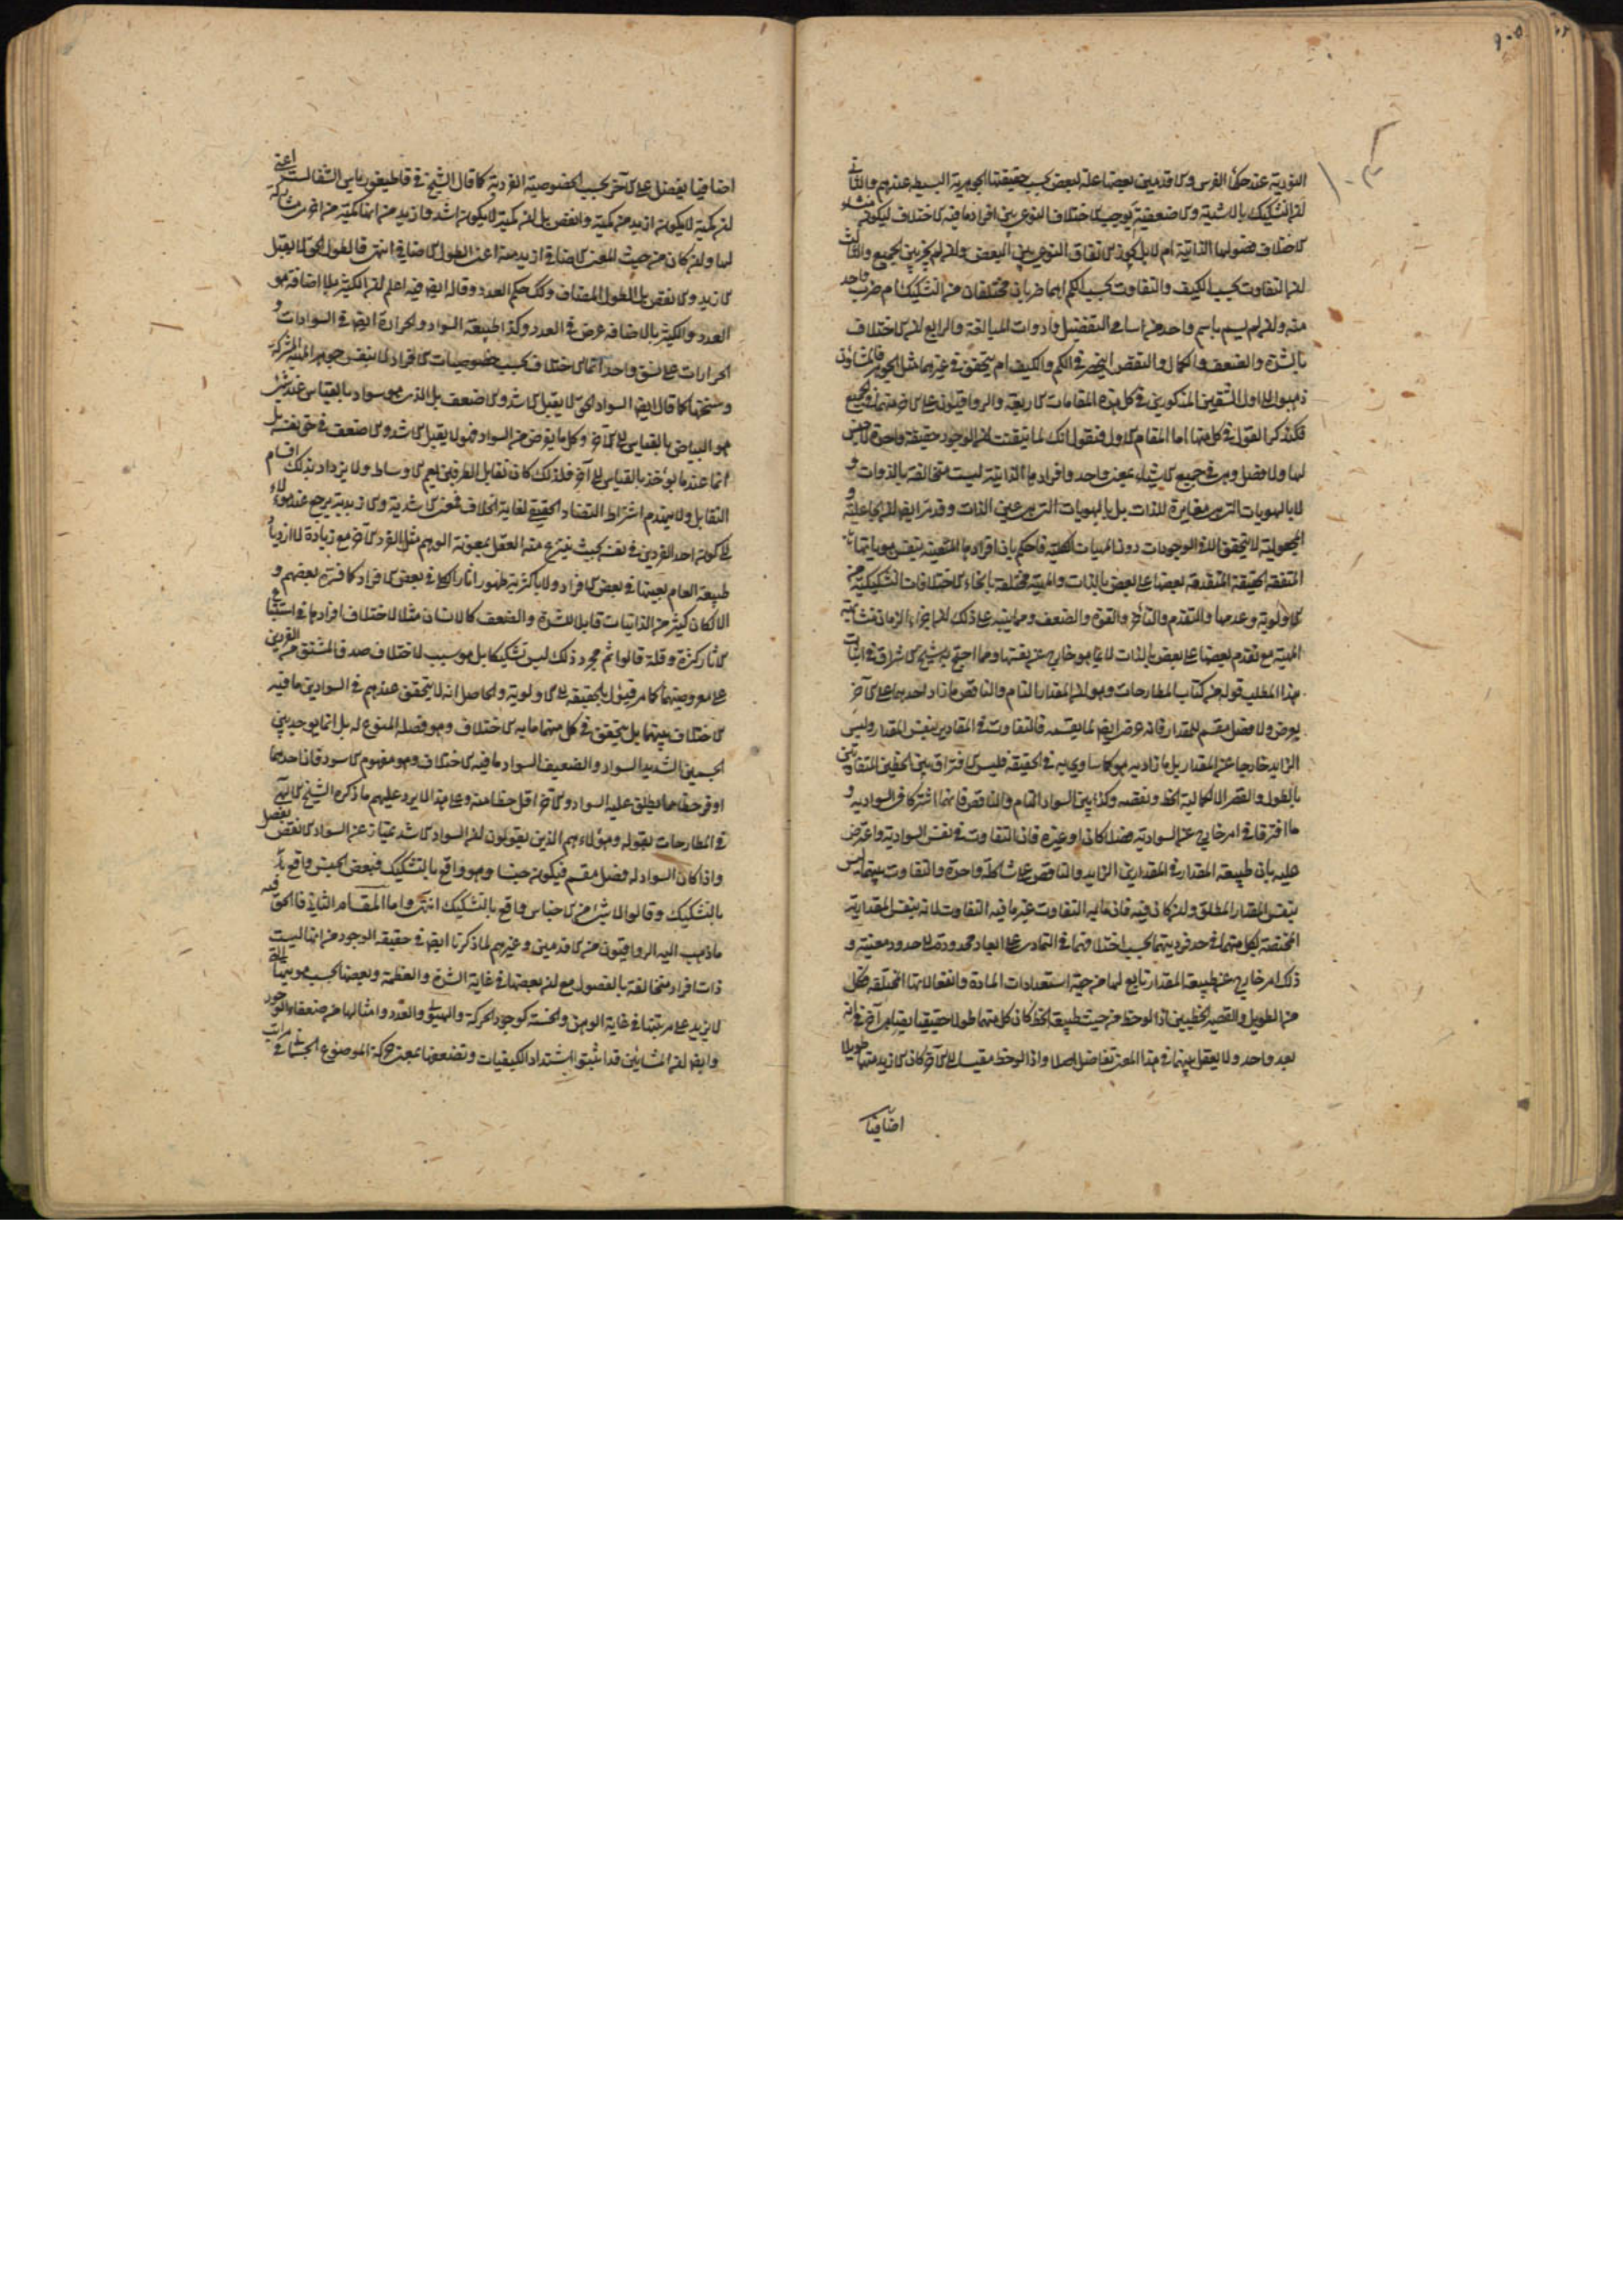 النورية عند حكماء الفرس والاقدمين بعضها علة لبعض بحسب حقيقتها الجوهرية البسيطة عندهم والثاني
ان التشكيك بالاشدية والاضعفية يوجب الاختلاف النوعي بين افراد ما فيه الاختلاف ليكون منشاؤه
الاختلاف فصولها الذاتية ام لا بل يجوز الاتفاق النوعي بين البعض وان لم يجز بين الجميع والثالث
ان التفاوت بحسب الكيف والتفاوت بحسب الكم اهما ضربان مختلفان من التشكيك ام ضرب واحد
منه وان لم يسم باسم واحد من اسامي التفضيل وادوات المبالغة والرابع ان الاختلاف
بالشدة والضعف والكمال والنقص انحصر في الكم والكيف ام يتحقق في غيرهما مثل الجوهر فالمشاؤون
ذهبوا الى اول الشقين المذكورين في كل من هذه المقامات الاربعة والرواقيون على الاخر منهما في الجميع
فلنذكر القول في كل منها اما المقام الاول فنقول انك لما تيقنت ان الوجود حقيقة واحدة لا جنس
لها ولا فصل وهي في جميع الاشياء بمعنى واحد وافرادها الذاتية ليست متخالفة بالذوات و
لا بالهويات التي هي مغايرة للذات بل بالهويات التي هي عين الذات وقد مر ايضا ان الجاعلية و
المجعولية لا يتحقق الا في الوجودات دون المهيات الكلية فاحكم بان افرادها المتعينة بنفس هوياتها
المتفقة الحقيقة المتقدمة بعضها على بعض بالذات والمهية مختلفة بانحاء الاختلافات التشكيكية من
الاولوية وعدمها والتقدم والتاخر والقوة والضعف ومما ينبه على ذلك ان اجزاء الزمان متشابهة
المهية مع تقدم بعضها على بعض بالذات لا بما هو خارج عن نفسها ومما احتج به شيخ الاشراق في اثبات
هذا المطلب قوله في كتاب المطارحات وهو ان المقدار التام والناقص ما زاد احدهما على الاخر
بعرض ولا فصل مقسم للمقدار فانه عرض ايضا لما يقسمه فالتفاوت في المقادير بنفس المقدار وليس
الزايد خارجا عن المقدار بل ما زاد به هو كما ساوى به في الحقيقة فليس الافتراق بين الخطين المتفاوتين
بالطول والقصر الا بكمالية الخط ونقصه وكذا بين السواد التام والناقص فانهما اشتركا في السوادية و
ما افترقا في امر خارج عن السوادية فصلا كان او غيره فان التفاوت في نفس السوادية واعترض
عليه بان طبيعة المقدار في المقدارين الزايد والناقص على شاكلة واحدة والتفاوت بينهما ليس
بنفس المقدار المطلق وان كان فيه فان ما به التفاوت غير ما فيه التفاوت لانه بنفس المقدارية
المختصة بكل منهما في حد فرديتهما بحسب اختلافهما في التمادي على ابعاد محدودة الى حدود معينة و
ذلك امر خارج عن طبيعة المقدار تابع لها من جهة استعدادات المادة وانفعالاتها المختلفة فكل
من الطويل والقصير الخطيين اذا لوحظ من حيث طبيعة الخط كان كل منهما طولا حقيقيا بقياس آخر في انه
بعد واحد ولا يعقل بينهما في هذا المعنى تفاضل اصلا واذا لوحظ مقيسا الى الاخر كان الازيد منهما طويلا
اضافيا
اضافيا يفضل على الاخر بحسب الخصوصية الفردية كما قال الشيخ في قاطيغورياس الشفا لست اعني
ان كمية لا يكون ازيد من كمية وانقص بل ان كمية لا يكون اشد وازيد من انها كمية من اخرى مشاركة
لها وان كان من حيث المعنى الاضافي ازيد منه اعني الطول الاضافي انتهى فالطول الحق لا يقبل
الازيد والانقص بل الطول المضاف وكذلك حكم العدد وقال ايضا فيه اعلم ان الكثير بلا اضافة هو
العدد والكثير بالاضافة عرض في العدد وكذا طبيعة السواد والحرارة ايضا في السوادات و
الحرارات على نسق واحد انما الاختلاف بحسب خصوصيات الافراد لا بنفس جوهر المهية المشتركة
وسنخها كما قال ايضا السواد الحق لا يقبل الاشد والاضعف بل الذي هو سواد بالقياس عند شيء
هو البياض بالقياس الى الاخر وكل ما يفرض من السواد فهو لا يقبل الاشد والاضعف في حق نفسه بل
انما عندما يؤخذ بالقياس الى آخر فلذلك كان تقابل الطرفين يعم الاوساط ولا يزداد بذلك اقسام
التقابل ولا ينهدم اشتراط التضاد الحقيقي لغاية الخلاف فمعنى الاشدية والازيدية يرجع عند هؤلاء
الى كون احد الفردين في نفسه بحيث ينتزع منه العقل بمعونة الوهم مثل الفرد الاخر مع زيادة لا ازدياد
طبيعة العام بعينها في بعض الافراد ولا باكثرية ظهور اثار الكلي في بعض الافراد كما فسره بعضهم و
الا لكان كثير من الذاتيات قابلا للشدة والضعف كالانسان مثلا لاختلاف افرادها في استتباع
الاثار كثرة وقلة قالوا ثم مجرد ذلك ليس تشكيكا بل هو سبب لاختلاف صدق المشتق من الفردين
على معروضيهما كما مر فيؤل بالحقيقة الى الاولوية والحاصل انه لا يتحقق عندهم في السوادين ما فيه
الاختلاف بينهما بل يتحقق في كل منهما ما به الاختلاف وهو فصله المنوع له بل انما يوجد بين
الجسمين الشديد السواد والضعيف السواد ما فيه الاختلاف وهو مفهوم الاسود فان احدهما
اوفر حظا مما يطلق عليه السواد والاخر اقل حظا منه وعلى هذا لا يرد عليهم ما ذكره الشيخ الالهي
في المطارحات بقوله وهؤلاء هم الذين يقولون ان السواد الاشد يمتاز عن السواد الانقص بفصل
واذا كان السواد له فصل مقسم فيكون جنسا وهو واقع بالتشكيك فبعض الجنس واقع
بالتشكيك وقالوا لا شيء من الاجناس واقع بالتشكيك انتهى واما المقام الثاني فالحق فيه
ما ذهب اليه الرواقيون من الاقدمين وغيرهم لما ذكرنا ايضا في حقيقة الوجود من انها ليست
ذات افراد متخالفة بالفصول مع ان بعضها في غاية الشدة والعظمة وبعضها بحسب هويتها
لا يزيد على مرتبتها في غاية الوهن والخسة كوجود الحركة والهيولى والعدد وامثالها من ضعفاء الوجود
وايضا ان المشائين قد اثبتوا اشتداد الكيفيات وتضعفها بمعنى حركة الموضوع الجسماني في مراتب